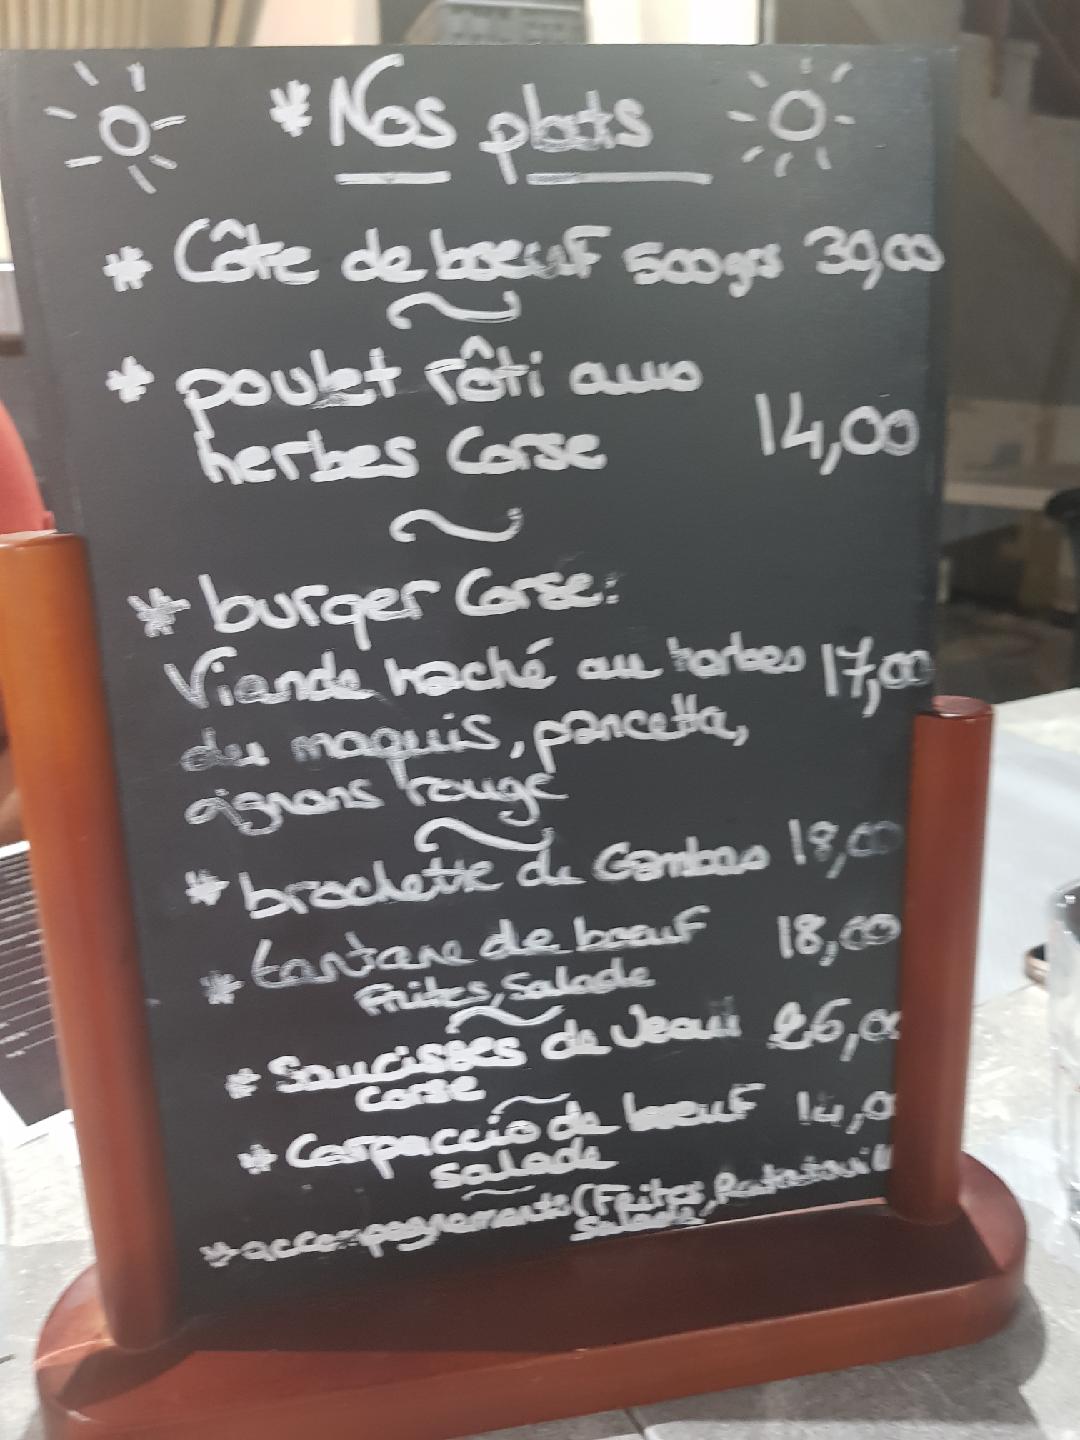 * Nos plats
* Côte de boeuf 500grs 30,00
* poulet rôti aux
herbes Corse 14,00
* burger Corse:
Viande haché au herbes 17,00
du maquis, pancetta,
oignons rouge
* brochette de Gambas 18,00
* tartare de boeuf 18,00
Frites, Salade
* Saucisses de Veau 26,00
Corse
* Carpaccio de boeuf 14,0
Salade
* accompagnements (Frites, Ratatouill
Salade